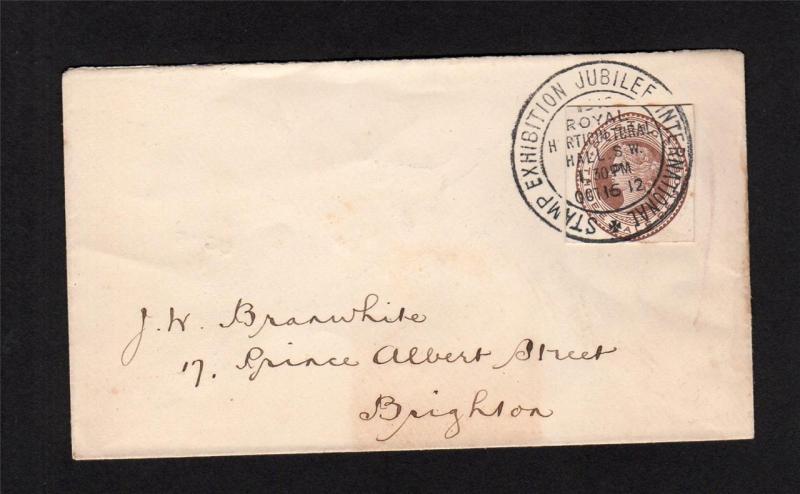 STAMP EXHIBITION JUBILEE INTERNATIONAL
ROYAL
HORTICULTURAL
HALL S.W.
1.30PM
OC 16 12
J. W. Branwhite
17, Prince Albert Street
Brighton